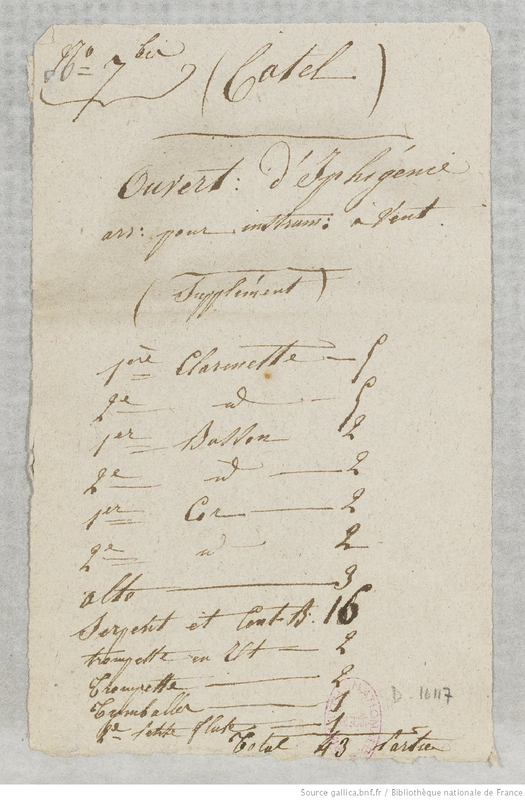 No 7 bis (Catel)
Ouvert: d'Iphigénie
arr: pour instrum: à Vent.
(Supplément)
1ere Clarinette — 5
2e id — 5
1er Basson 2
2e id — 2
1er Cor — 2
2e id 2
alto — 3
Serpent et Cont. B. 16
trompette en Ut — 2
Trompette — 2
Tymballes — 1
2e petite flute — 1
Total 43 Parties
D. 16117
Source gallica.bnf.fr / Bibliothèque nationale de France